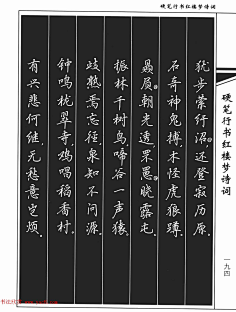 硬笔行书红楼梦诗词
犹步萦纡沼。还登寂历原。
石奇神鬼搏。木怪虎狼蹲。
赑屃朝光透。罘罳晓露屯。
振林千树鸟。啼谷一声猿。
歧熟焉忘径。泉知不问源。
钟鸣栊翠寺。鸡唱稻香村。
有兴悲何继。无愁意岂烦。
硬笔行书红楼梦诗词
一九四